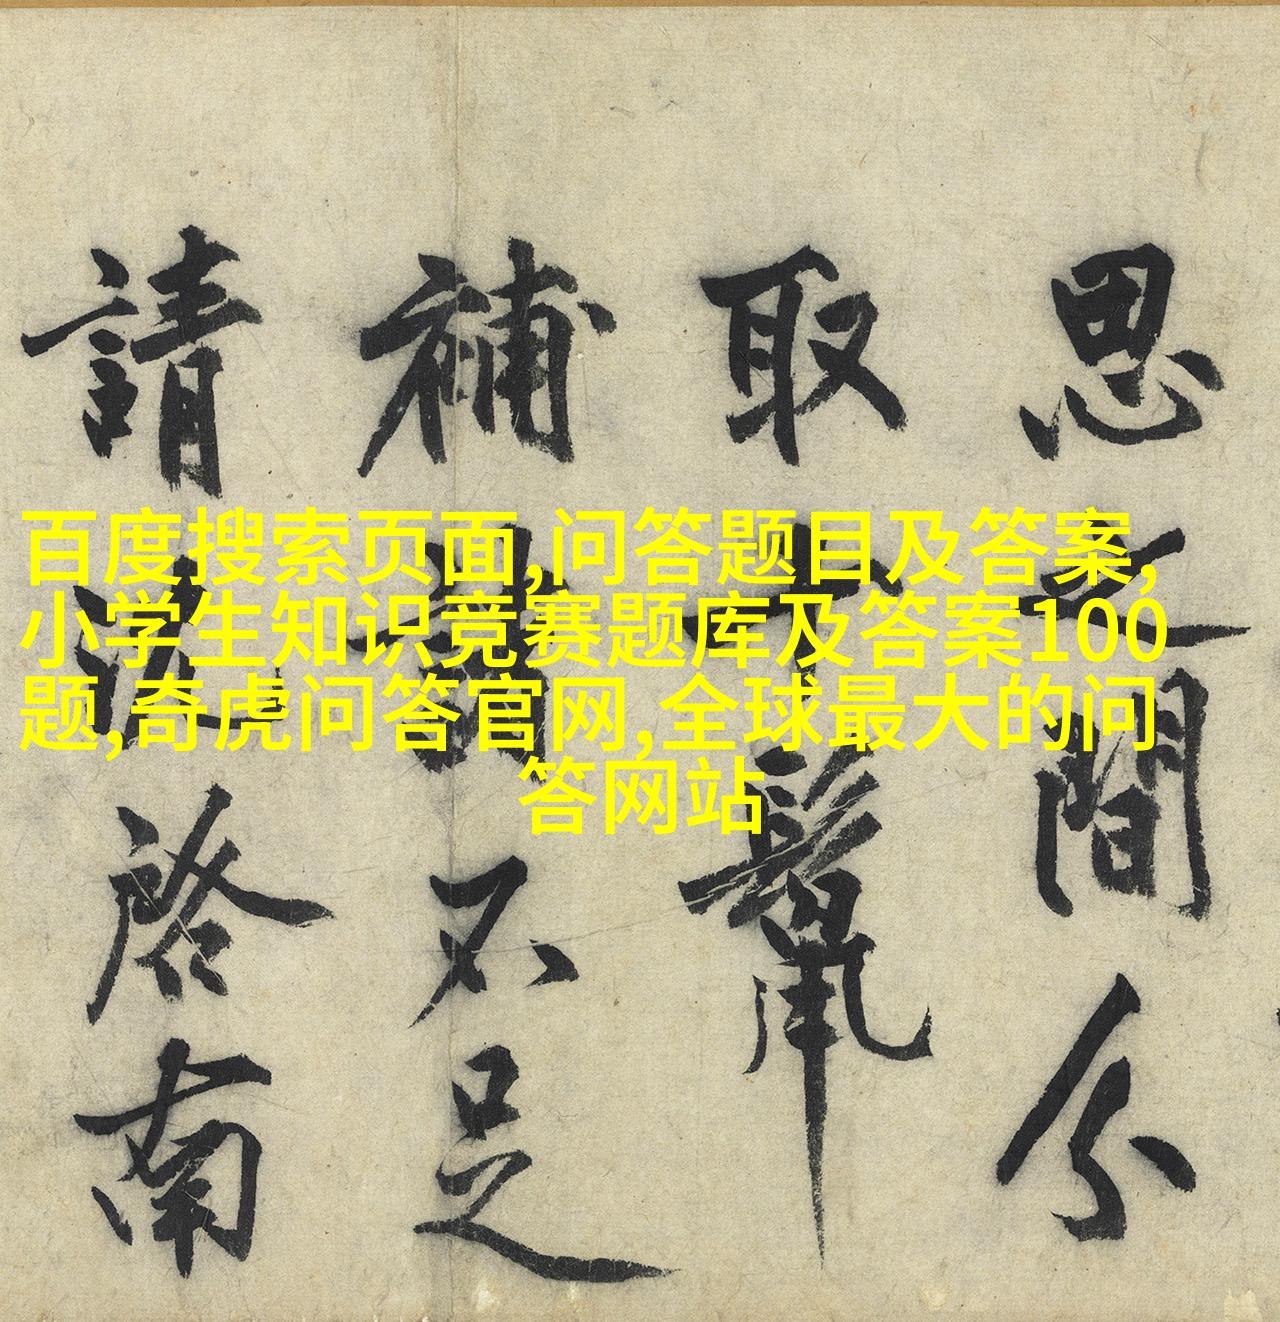 百度搜索页面,问答题目及答案,
小学生知识竞赛题库及答案100
题,奇虎问答官网,全球最大的问
答网站
思之間分
取鬣
補不足
請啓南